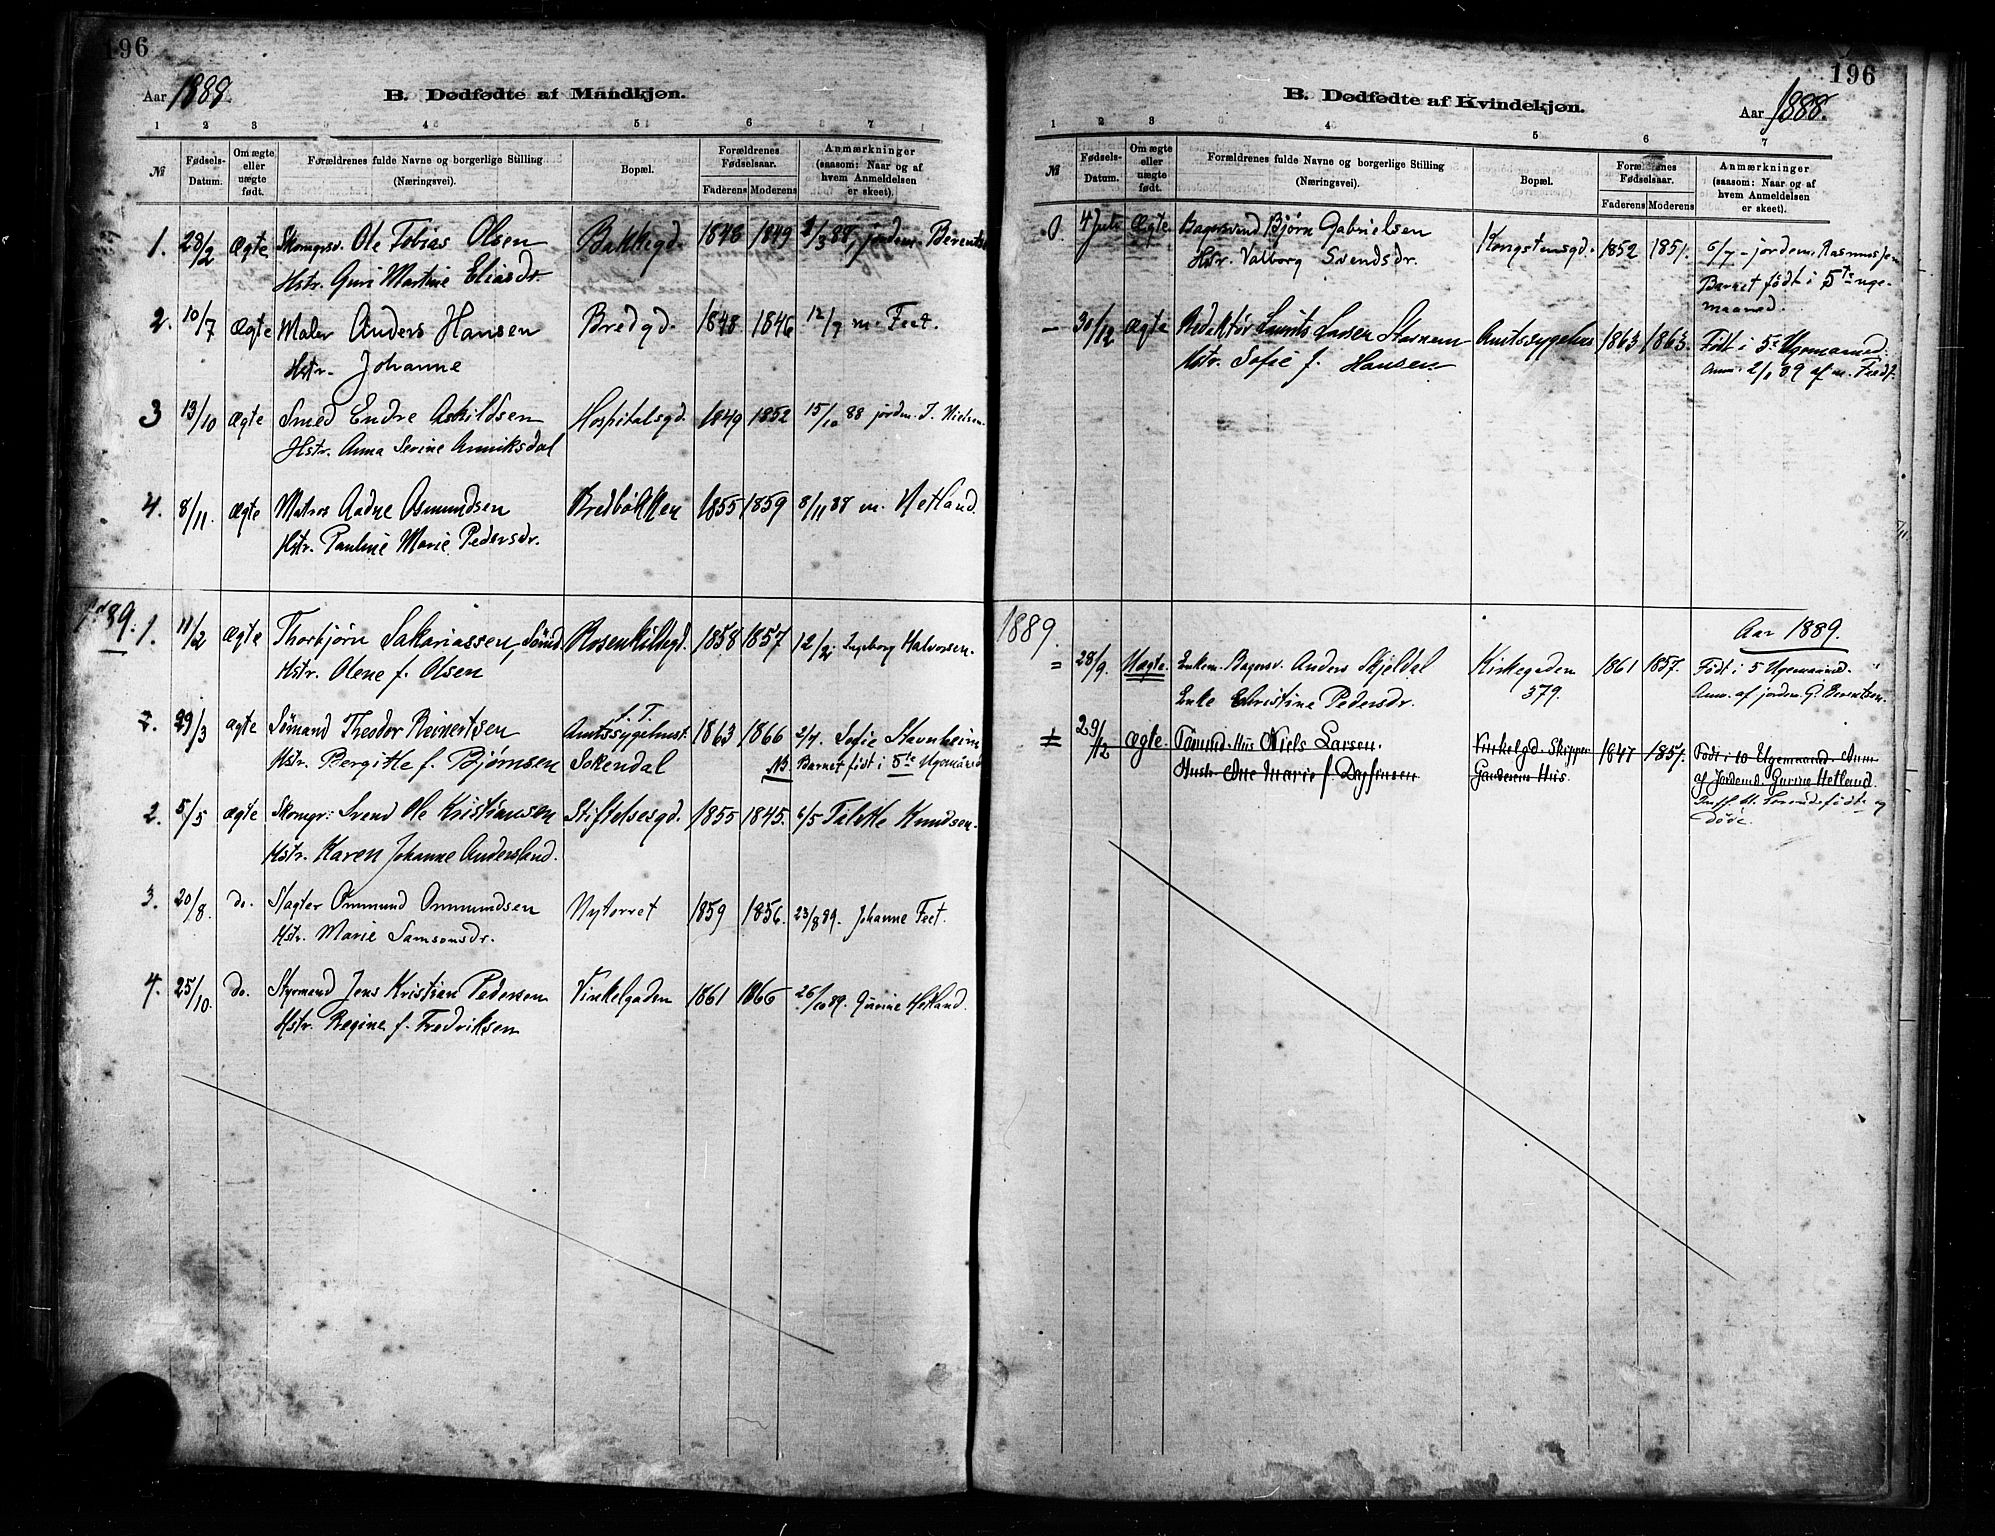 196
Aar 1888.
B. Dødfødte af Mandkjøn.
1 2 3 4 5 6 7
№
Fødsels-Datum.
Om ægte eller uægte født.
Forældrenes fulde Navne og borgerlige Stilling (Næringsvei).
Bopæl.
Forældrenes Fødselsaar.
Faderens Moderens
Anmærkninger (saasom: Naar og af hvem Anmeldelsen er skeet).
1. 28/2 Ægte Skomgrsv. Ole Tobias Olsen Bakkegd. 1848 1849 /3 88, jordm. Berentse
Hstr. Guri Martine Eliasdr.
2. 10/7 Ægte Maler Anders Hansen Bredgd. 1848 1846 12/7 m. Feet.
Hstr. Johanne
3 13/10 Ægte Smed Endre Askildsen Hospitalsgd. 1849 1852 15/10 88 jordm. I. Nielsen.
Hstr. Anna Serine Anniksdal
4. 8/11. Ægte Matros Aadne Asmundsen Bredbakken 1855 1859 8/11 88 m. Hetland.
Hstr. Pauline Marie Pedersdr.
89. 1. 11/2 Ægte Thorbjørn Sakariassen, Sømd. Rosenkildegd. 1858 1857 12/2. Ingeborg Halvorsen.
Hstr. Olene f. Olsen
2. 29/3 ægte Sømand Theodor Reinertsen f. T. Amtssygehuset 1863 1866 2/4. Sofie Stavnheim
Hstr. Bergitte f. Bjørnsen Sokendal NB. Barnet født i 5te Ugemaaned
2. 5/5 ægte Skomgr. Svend Ole Kristiansen Stiftelsesgd. 1855 1845. 6/5 Talette Knudsen.
Hstr. Karen Johanne Andersland.
3. 20/8. do. Slagter Ommund Ommundsen Nytorvet 1859 1856. 23/8 89. Johanne Feet.
Hstr. Marie Samsonsdr.
4. 25/10. do. Styrmand Jens Kristian Pedersen Vinkelgaden 1861 1866 26/10 89. Gurine Hetland.
Hstr. Regine f. Fredriksen
196
B. Dødfødte af Kvindekjøn.
Aar 1888.
1 2 3 4 5 6 7
№
Fødsels-Datum.
Om ægte eller uægte født.
Forældrenes fulde Navne og borgerlige Stilling (Næringsvei).
Bopæl.
Forældrenes Fødselsaar.
Faderens Moderens
Anmærkninger (saasom: Naar og af hvem Anmeldelsen er skeet).
0. 4 Juli Ægte Bagersvend Bjørn Gabrielsen Kongstensgd. 1852 1851. 6/7 - jordem. Rasmussen
Hstr. Valborg Svendsdr. Barnet født i 5te uge-
maaned.
– 30/12 Ægte Redaktør Laurits Larsen Amtssygehus 1863 1863. Født i 5te Ugemaaned.
Hstr. Sofie f. Hansen Anm. 2/1 89 af m.
1889. Aar 1889.
= 28/9. Uægte. Enkem. Bagersv. Anders Skjeldal Kirkegaden 1861 1857. Født i 5 Ugemaaned.
Enke Christine Pedersdr. 379. Anm. af jordm. G. Berentsen.
29/12 ægte. Tømmd. Hus Niels Larsen. Vinkelgd. Skipper 1847 1857. Født i 10 Ugemaaned. Anm
Hustr. Ane Marie f. Dahlmann Hus. af Jordemd. Gurine Hetland.
Indf. u. Levendefødte og
døde.